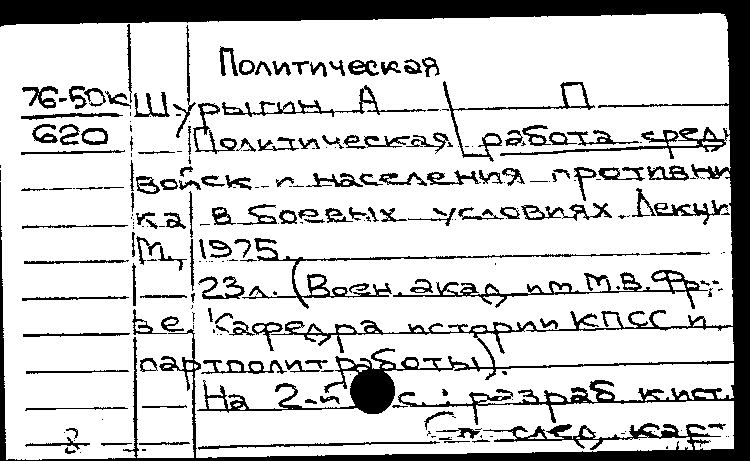 Политическая
76-50к Шурыгин, А П
620 Политическая работа сред
войск и населения противни
ка в боевых условиях. Лекци
М., 1975.
23л. (Воен. акад. им. М.В. Фру
зе. Кафедра истории КПСС и
партполитработы).
На 2-й с.: разраб. к.ист.
См след. карт
8